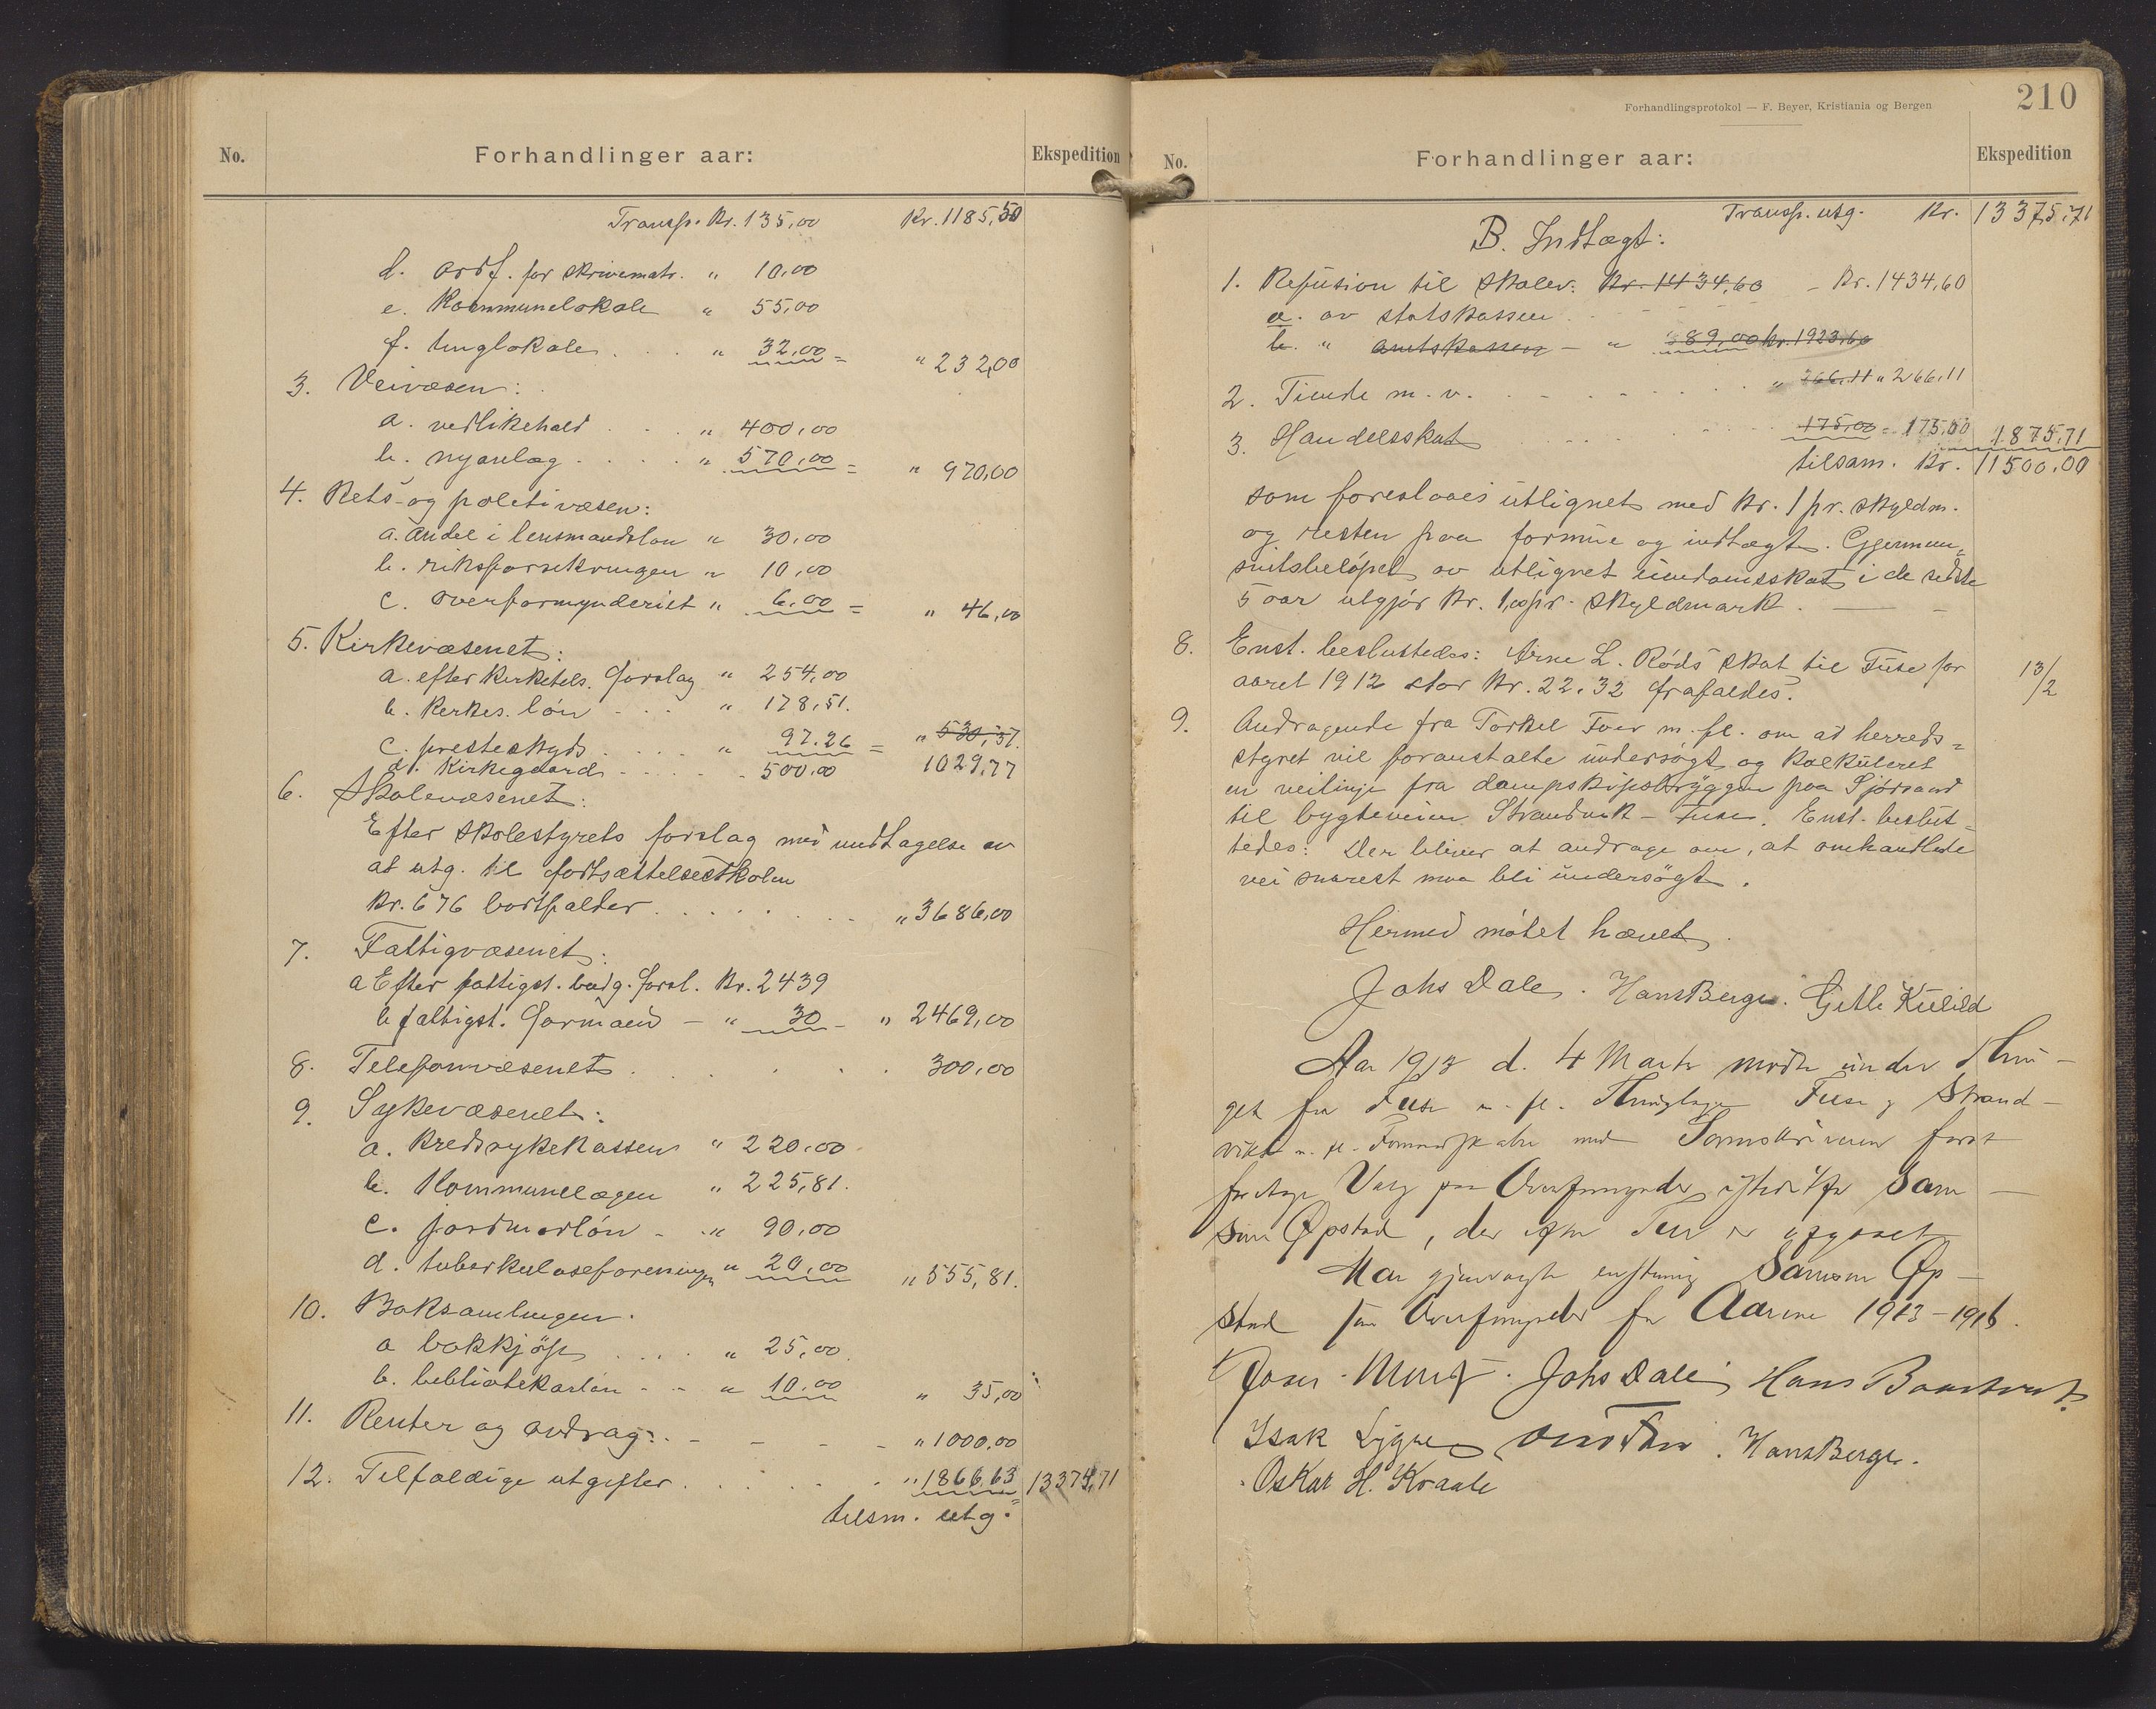 No. Forhandlinger aar: Ekspedition
Transp. Kr. 135,00 Kr. 1185,50
d. ordf. for skrivematr. " 10,00
e. Kommunelokale " 55,00
f. tinglokale . . . " 32,00 = " 232,00
3. Veivæsen:
a. vedlikehold . . . " 400,00
b. nyanlæg . . . . " 570,00 = " 970,00
4. Rets- og politivæsen:
a. Andel i lensmandsløn " 30,00
b. riksforsikringen " 10,00
c. overformynderiet " 6,00 = " 46,00
5. Kirkevæsenet:
a. efter kirketils. forslag " 254,00
b. kirkes. løn - . . " 178,51.
c. presteskyds . . . . " 97.26 = " 530,57.
d. Kirkegaard . . . . . 500,00 1029,77
6. Skolevæsenet:
Efter skolestyrets forslag med undtagelse av
at utg. til fortsættelsesskolen
Kr. 676 bortfalder . . . . . . . . " 3686,00
7. Fattigvæsenet:
a Efter fattigst. budg. forsl. Kr. 2439
b fattigst. formand - " 30 - " 2469,00
8. Telefonvæsenet . . . . . 300,00
9. Sykevæsenet:
a. Kredssykekassen " 220,00
b. Kommunelægen " 225,81.
c. jordmorløn - . " 90,00
d. tuberkuloseforeningen " 20,00 " 555,81.
10. Boksamlingen.
a bokkjøp . . . . " 25,00
b. bibliotekarløn - - " 10.00 " 35,00
11. Renter og avdrag: . - - - - " 1000,00
12. Tilfældige utgifter . . . . . . " 1866,63 13374,71
tilsm. utg.
Forhandlingsprotokol — F. Beyer, Kristiania og Bergen 210
No. Forhandlinger aar: Ekspedition
Transp. utg. Kr. 13375,71
B. Indtægt:
1. Refusion til skolev. Kr. 1434,60 - Kr. 1434,60
a. av statskassen . - - -
b. " amtskassen - " 489,00 kr. 1923,60
2. Tiende m. v. . . - . - - . . " 266,11 " 266,11
3. Handelsskat . . . . . . . 175,00 = 175,00 1875,71
tilsam. Kr. 11500,00
som foreslaaes utlignet med Kr. 1 pr. skyldm.
og resten paa formue og indtægt. Gjennem-
snitsbeløpet av utlignet eiendomsskat i de sidste
5 aar utgjør Kr. 1,00 pr. Skyldmark. —
8. Enst. besluttedes: Arne L. Røds skat til Fuse for 13/2
aaret 1912 stor Kr. 22.32 frafaldes.
9. Andragende fra Torkel m. fl. om at herreds-
styret vil foranstalte undersøgt og kalkuleret
en veilinje fra dampskipsbryggen paa Sjøsand
til bygdeveien Strandvik - Fuse. Enst. beslut-
tedes: Der bliver at andrage om, at omhandlede
vei snarest maa bli undersøgt.
Hermed møtet hævet.
Johs Dale. Hans Berge. Gitle Kilild
Aar 1913 d. 4 Marts mødte under Thin-
get for Fuse m. fl. Thinglage Fuse og Strand-
viks m. fl. Formandskaber med Sorenskriveren for at
foretage Valg paa Overformynder istedetfor Sam-
son Øpstad, der efter Tur er afgaaet
Man gjenvalgte enstemmig Samson Øp-
stad som Overformynder for Aarene 1913-1916.
Johs Dale Hans
Isak Lygre Hans Berge.
Oskar H. Kraale